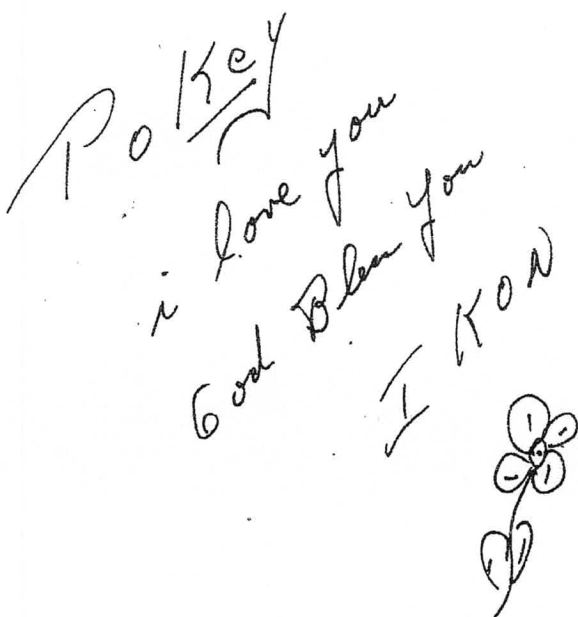 PoKey
i love you
God Bless you
IKON